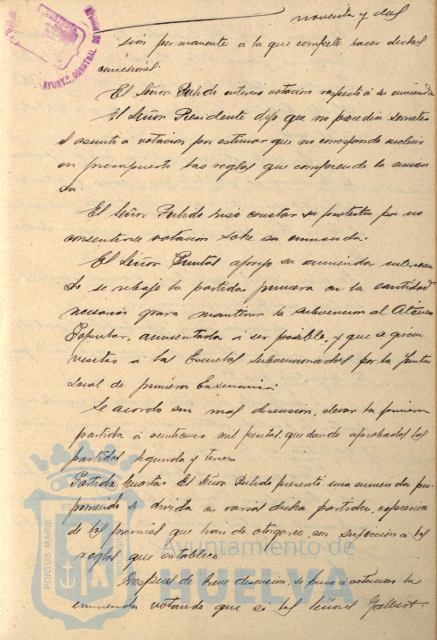 noventa y dos
sión permanente a la que compete hacer dichas
concesiones.
El Señor Pulido interesa votación respecto á su enmienda
El Señor Presidente dijo que no procedía someter
el asunto á votación por estimar que no corresponde incluir
en presupuesto las reglas que comprende la enmien
da.
El Señor Pulido hizo constar su protesta por no
consentirse votación sobre su enmienda.
El Señor apoyó su enmienda
se rebaje la partida primera en la cantidad
necesaria para mantener la subvención al Ateneo
Popular, aumentada á ser posible, y que se giren
visitas á las Escuelas subvencionadas por la Junta
Local de primera Enseñanza.
Se acordó sin mas discusión, elevar la primera
partida á mil pesetas, quedando aprobadas las
partidas segunda y tercera
Partida cuarta El Señor Pulido presentó una enmienda pro
poniendo se divida en varias dicha partida, expresiva
de los premios que han de otorgarse, con sujeción a las
reglas que establece
Despues de breve discusión, se puso á votación la
enmienda votando que si los Señores
AYUNTA
PORTUS MARIS
Ayuntamiento de
HUELVA